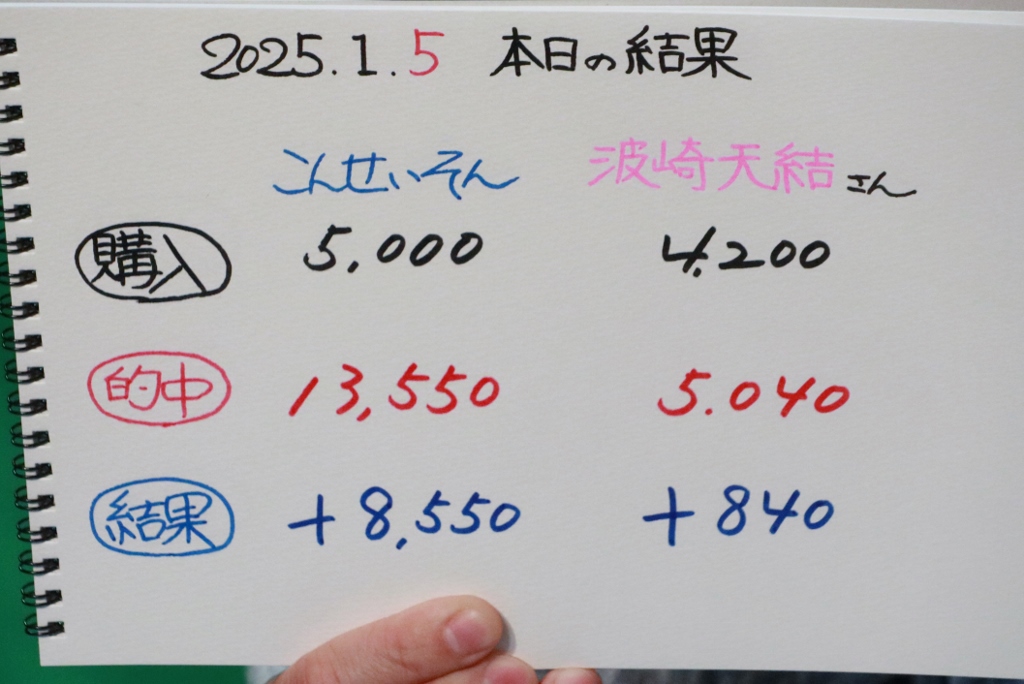 2025.1.5 本日の結果
こんせいそん 波崎天結さん
購入 5,000 4,200
的中 13,550 5.040
結果 +8,550 +840